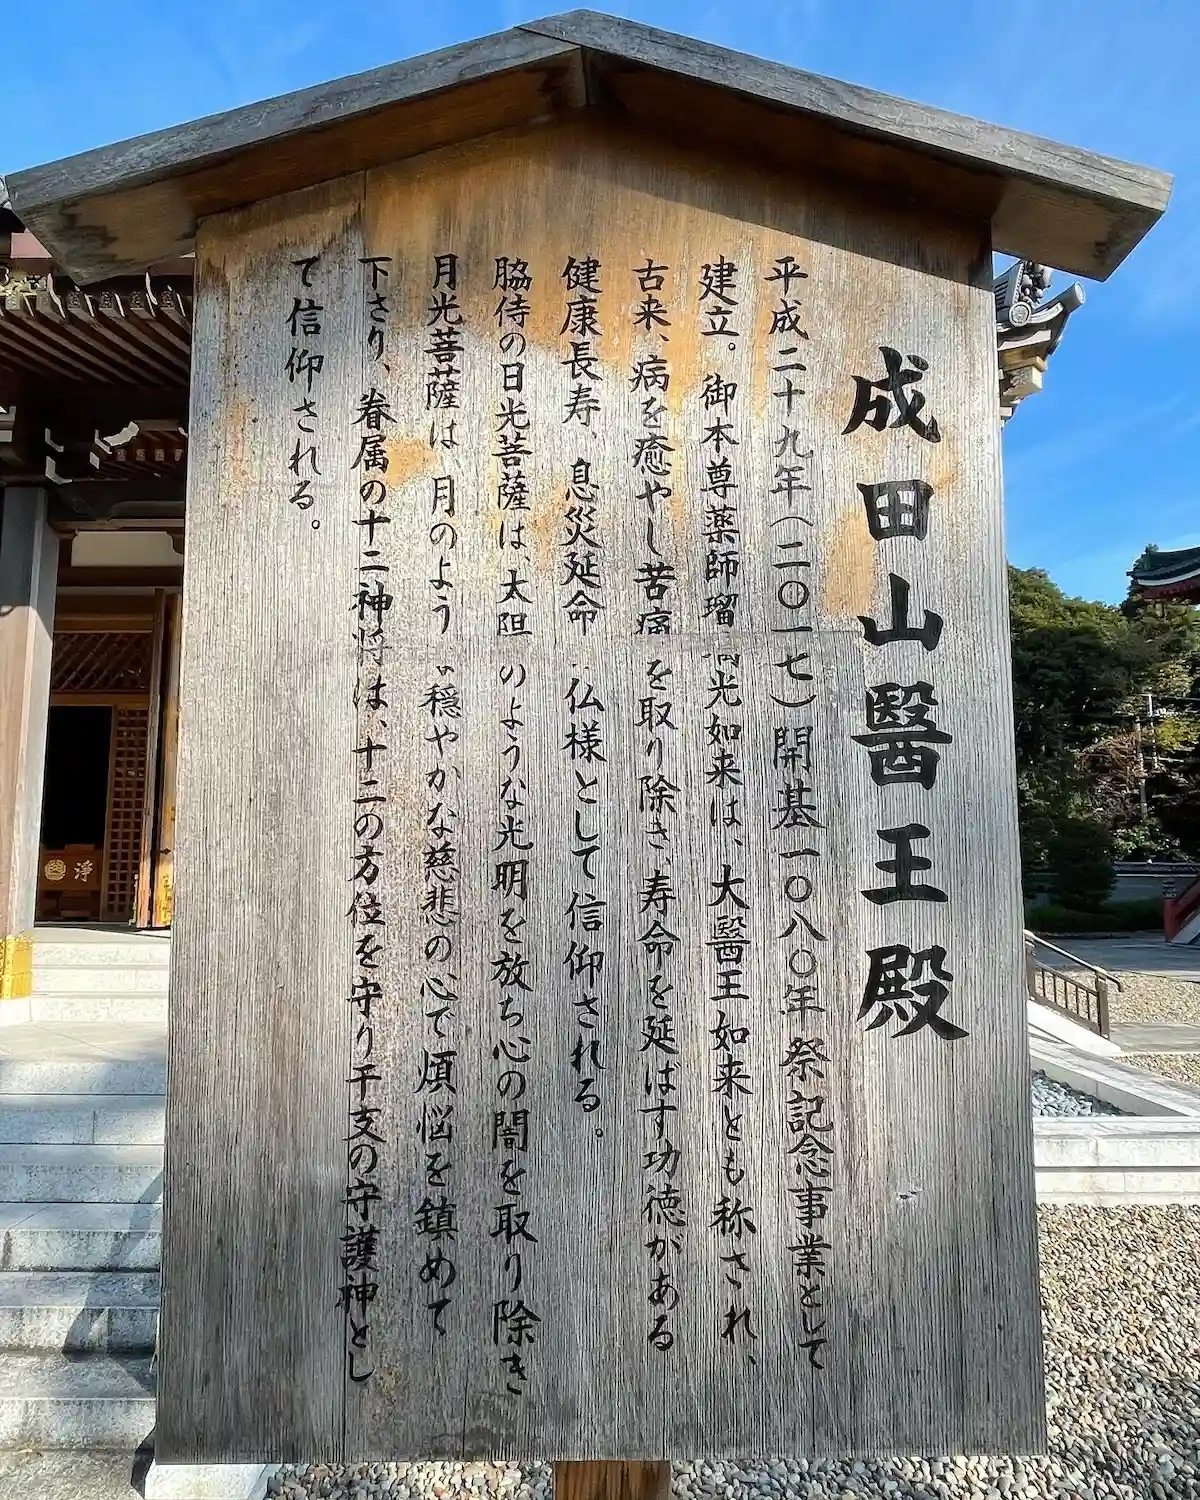 成田山醫王殿
平成二十九年（二〇一七）開基一〇八〇年祭記念事業として
建立。御本尊薬師瑠 光如来は、大醫王如来とも称され、
古来、病を癒やし苦痛を取り除き、寿命を延ばす功徳がある
健康長寿、息災延命 仏様として信仰される。
脇侍の日光菩薩は、太陽のような光明を放ち心の闇を取り除き
月光菩薩は、月のよう 穏やかな慈悲の心で煩悩を鎮めて
下さり、眷属の十二神将は、十二の方位を守り干支の守護神とし
て信仰される。
浄